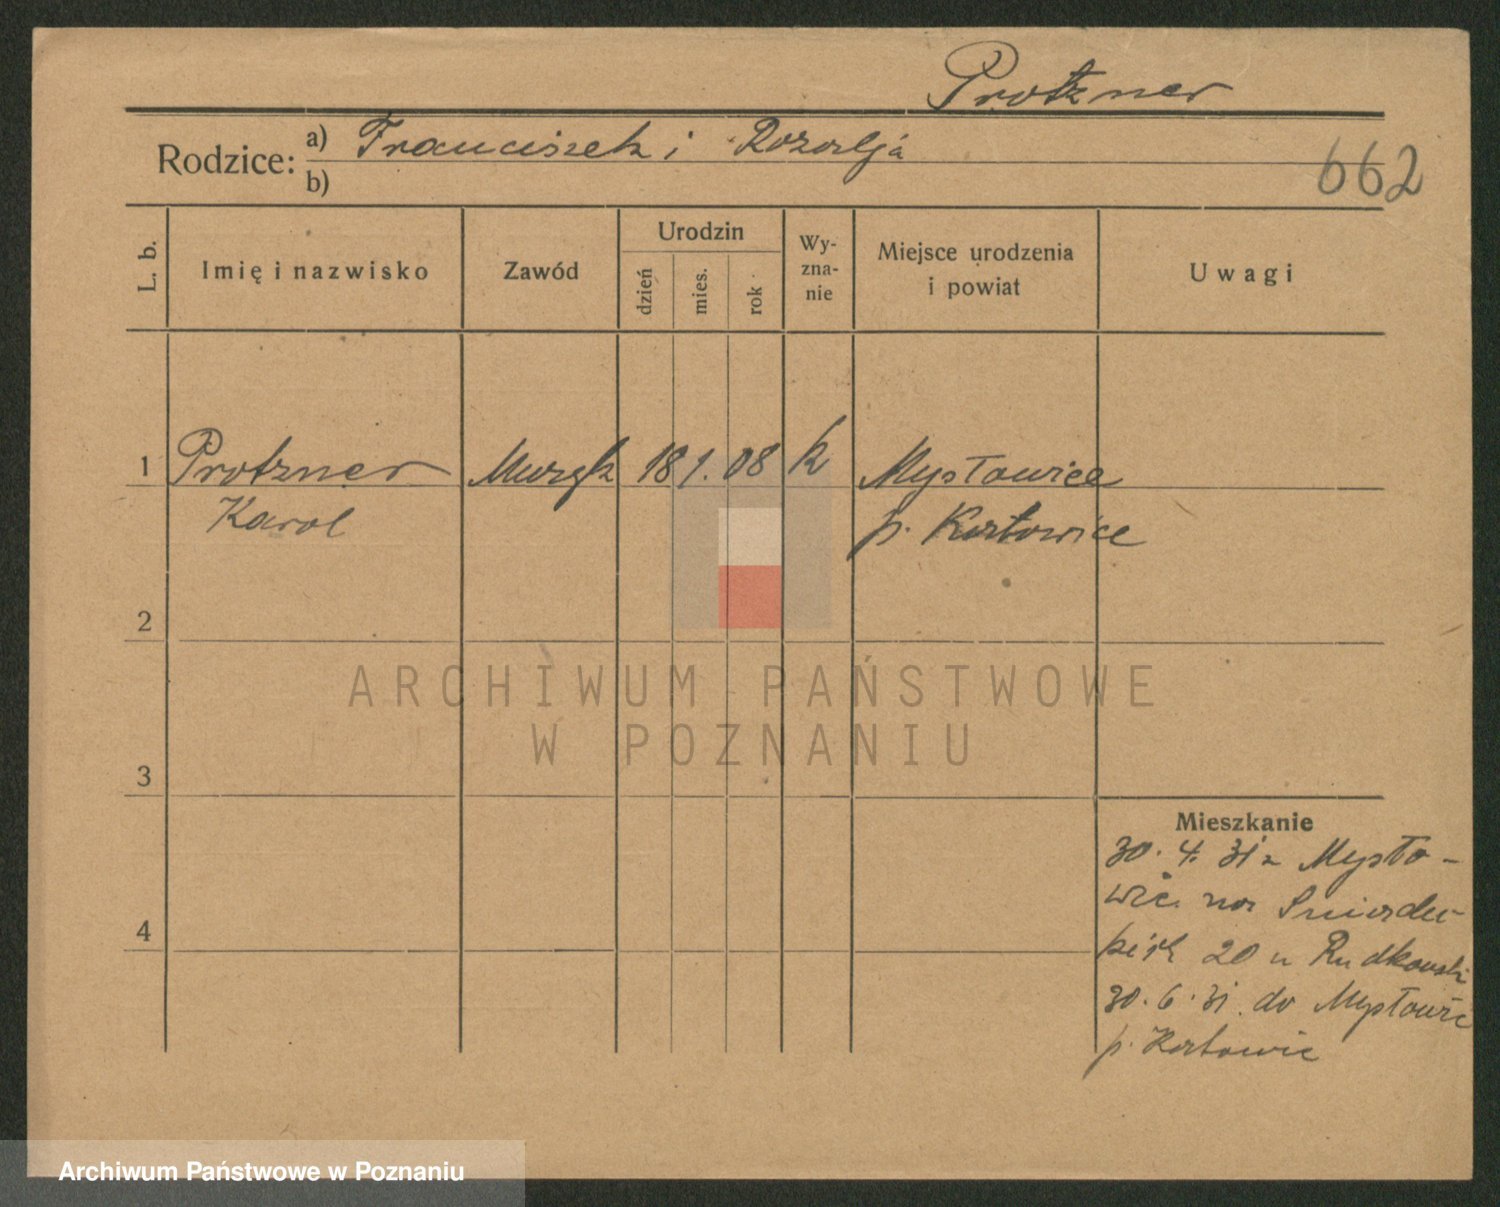 Protzner
Rodzice: a) Franciszek i Rozalja
b)
662
L. b.
Imię i nazwisko
Zawód
Urodzin
dzień
mies.
rok
Wy-
zna-
nie
Miejsce urodzenia
i powiat
Uwagi
1 Protzner Muzyk 18 1. 08 k Mysłowice
Karol p. Katowice
2
ARCHIWUM PAŃSTWOWE
W POZNANIU
3
Mieszkanie
30. 4. 31 z Mysło-
wic na Śniadec-
kich 20 u Rudkowski
4
30. 6. 31. do Mysłowic
p. Katowic
Archiwum Państwowe w Poznaniu